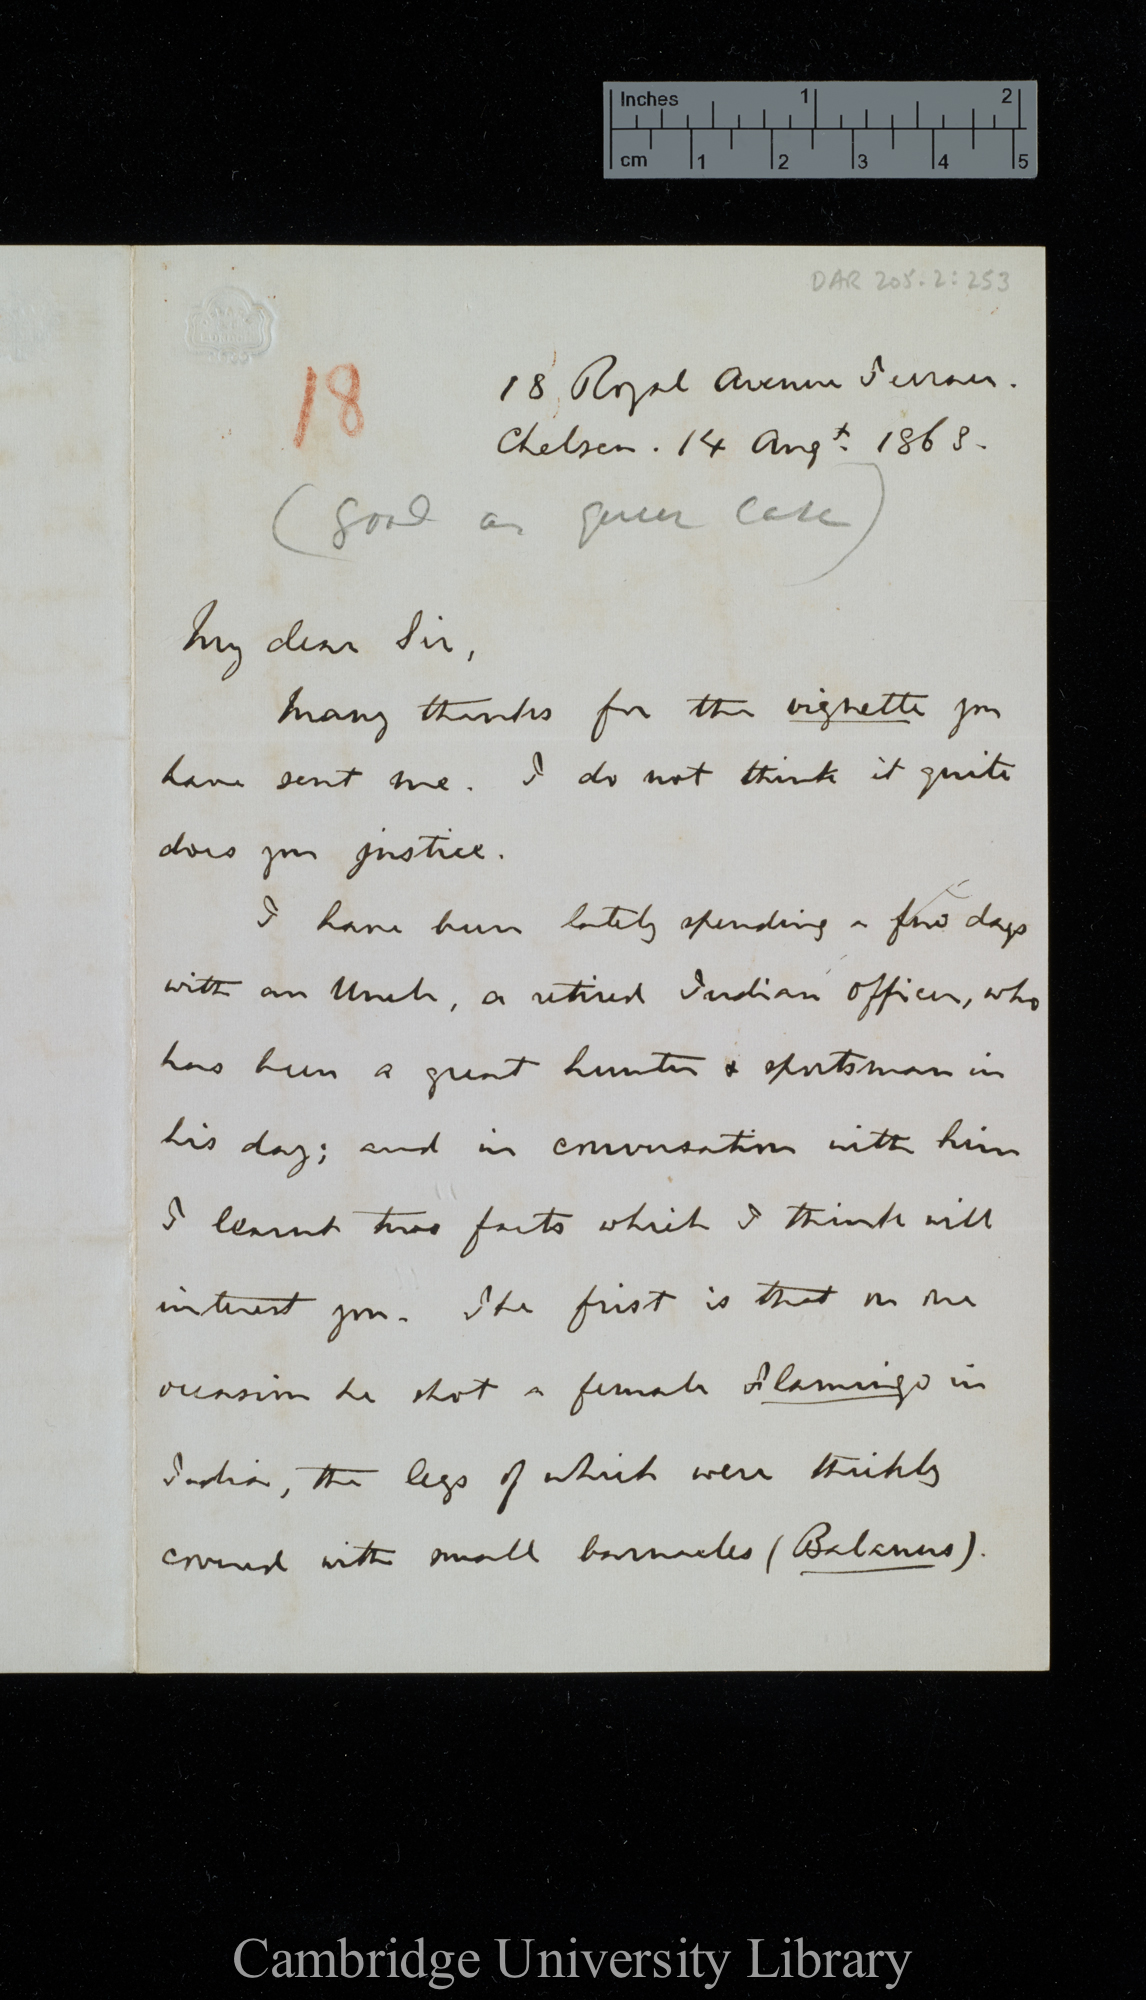 Inches 1 2
cm 1 2 3 4 5
DAR 205.2:253
18
18 Royal Avenue Terrace.
Chelsea. 14 Augt. 1868.
(Good as queer case)
My dear Sir,
Many thanks for the vignette you
have sent me. I do not think it quite
does you justice.
I have been lately spending a few days
with an Uncle, a retired Indian officer, who
has been a great hunter & sportsman in
his day; and in conversation with him
I learnt two facts which I think will
interest you. The first is that on one
occasion he shot a female Flamingo in
India, the legs of which were thickly
covered with small barnacles (Balanus).
Cambridge University Library